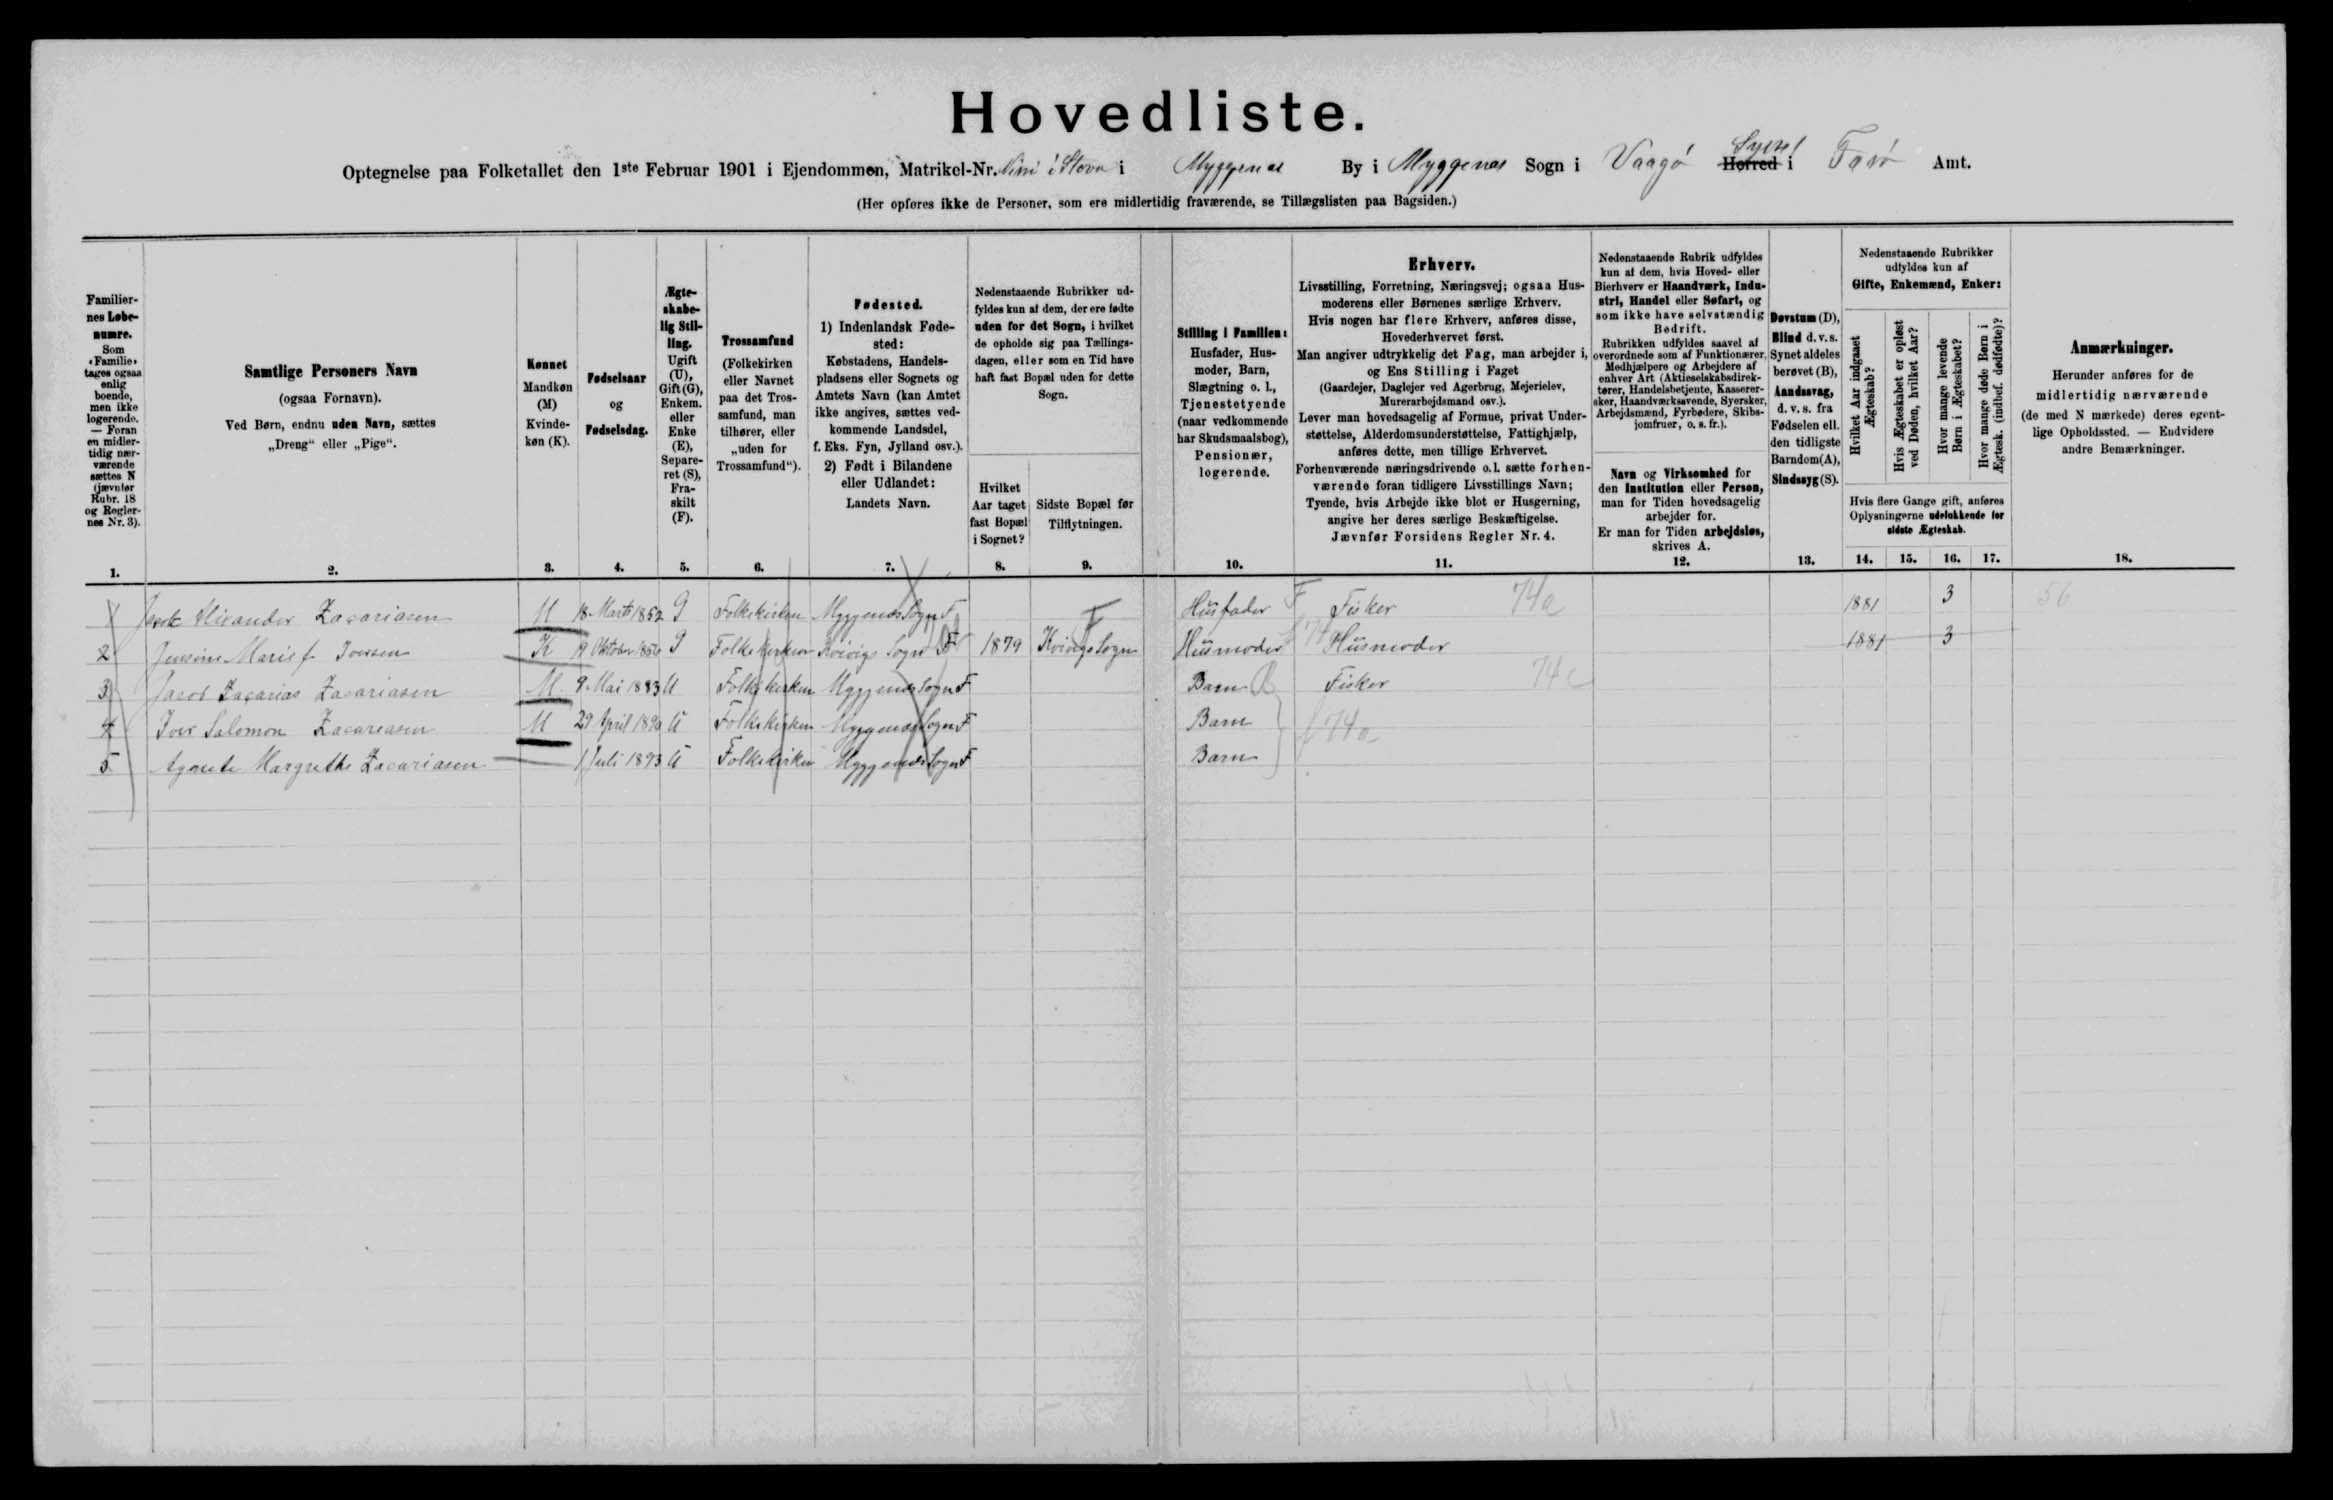 Hovedliste.
Optegnelse paa Folketallet den 1ste Februar 1901 i Ejendommen, Matrikel-Nr. i Stova i Myggenæs By i Myggenæs Sogn i Vaagø Syssel Herred i Færø Amt.
(Her opføres ikke de Personer, som ere midlertidig fraværende, se Tillægslisten paa Bagsiden.)
Familiernes Løbenumre.
Som «Familie» tages ogsaa enlig boende, men ikke logerende. — Foran en midlertidig nærværende sættes N (jævnfør Rubr. 18 og Reglernes Nr. 3).
1.
Samtlige Personers Navn
(ogsaa Fornavn).
Ved Børn, endnu uden Navn, sættes
„Dreng“ eller „Pige“.
2.
Kønnet
Mandkøn
(M)
Kvindekøn (K).
3.
Fødselsaar
og
Fødselsdag.
4.
Ægteskabelig Stilling.
Ugift (U), Gift (G), Enkem. eller Enke (E), Separeret (S), Fraskilt (F).
5.
Trossamfund
(Folkekirken eller Navnet paa det Trossamfund, man tilhører, eller „uden for Trossamfund“).
6.
Fødested.
1) Indenlandsk Fødested:
Købstadens, Handelspladsens eller Sognets og Amtets Navn (kan Amtet ikke angives, sættes vedkommende Landsdel, f. Eks. Fyn, Jylland osv.).
2) Født i Bilandene eller Udlandet:
Landets Navn.
7.
Nedenstaaende Rubrikker udfyldes kun af dem, der ere fødte uden for det Sogn, i hvilket de opholde sig paa Tællingsdagen, eller som en Tid have haft fast Bopæl uden for dette Sogn.
Hvilket Aar taget fast Bopæl i Sognet?
8.
Sidste Bopæl før Tilflytningen.
9.
Stilling i Familien:
Husfader, Husmoder, Barn, Slægtning o. l., Tjenestetyende (naar vedkommende har Skudsmaalsbog), Pensionær, logerende.
10.
Erhverv.
Livsstilling, Forretning, Næringsvej; ogsaa Husmoderens eller Børnenes særlige Erhverv.
Hvis nogen har flere Erhverv, anføres disse, Hovederhvervet først.
Man angiver udtrykkelig det Fag, man arbejder i, og Ens Stilling i Faget
(Gaardejer, Daglejer ved Agerbrug, Mejerielev, Murerarbejdsmand osv.).
Lever man hovedsagelig af Formue, privat Understøttelse, Alderdomsunderstøttelse, Fattighjælp, anføres dette, men tillige Erhvervet.
Forhenværende næringsdrivende o. l. sætte forhenværende foran tidligere Livsstillings Navn;
Tyende, hvis Arbejde ikke blot er Husgerning, angive her deres særlige Beskæftigelse.
Jævnfør Forsidens Regler Nr. 4.
11.
Nedenstaaende Rubrik udfyldes kun af dem, hvis Hoved- eller Bierhverv er Haandværk, Industri, Handel eller Søfart, og som ikke have selvstændig Bedrift.
Rubrikken udfyldes saavel af overordnede som af Funktionærer, Medhjælpere og Arbejdere af enhver Art (Aktieselskabsdirektører, Handelsbetjente, Kasserersker, Haandværkssvende, Syersker, Arbejdsmænd, Fyrbødere, Skibsjomfruer, o. s. fr.).
Navn og Virksomhed for den Institution eller Person, man for Tiden hovedsagelig arbejder for.
Er man for Tiden arbejdsløs, skrives A.
12.
Døvstum (D), Blind d. v. s. Synet aldeles berøvet (B), Aandssvag, d. v. s. fra Fødselen ell. den tidligste Barndom (A), Sindssyg (S).
13.
Nedenstaaende Rubrikker udfyldes kun af Gifte, Enkemænd, Enker:
Hvilket Aar indgaaet Ægteskab?
Hvis Ægteskabet er opløst ved Døden, hvilket Aar?
Hvor mange levende Børn i Ægteskabet?
Hvor mange døde Børn i Ægtesk. (indbef. dødfødte)?
Hvis flere Gange gift, anføres Oplysningerne udelukkende for sidste Ægteskab.
14. 15. 16. 17.
Anmærkninger.
Herunder anføres for de midlertidig nærværende (de med N mærkede) deres egentlige Opholdssted. — Endvidere andre Bemærkninger.
18.
1 Zacariasen M 18 Marts 1852 G Folkekirken Myggenæs Sogn F Husfader F Fisker 74a 1881 3 56
2 Jensine Marie f. Joensen K 19 Oktober 1856 G Folkekirken Kvivigs Sogn F 1879 Kvivigs Sogn Husmoder Husmoder 1881 3
3 Jacob Zacarias Zacariasen M 9 Mai 1883 U Folkekirken Myggenæs Sogn F Barn B Fisker 74c
4 Joen Salomon Zacariasen M 29 April 1890 U Folkekirken Myggenæs Sogn F Barn 74a
5 Agnete Margrethe Zacariasen 1 Juli 1893 U Folkekirken Myggenæs Sogn F Barn